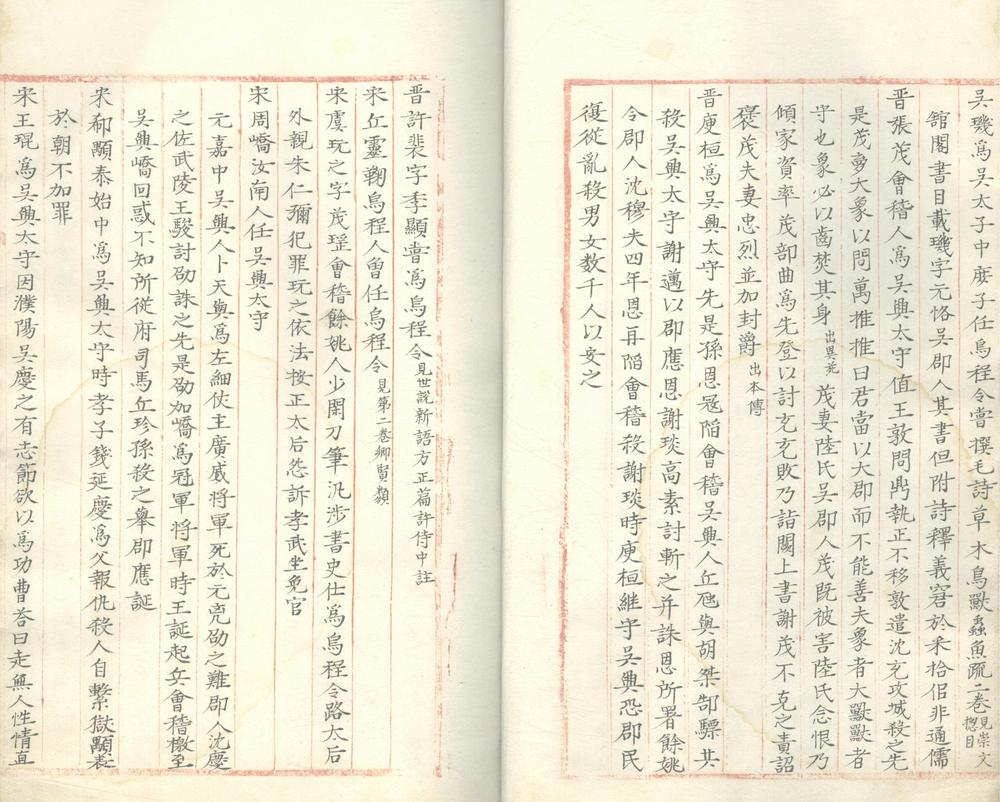 吳璣爲吳太子中庻子任烏程令嘗撰毛詩草木鳥獸蟲魚䟽二卷見崇文揔目
舘閣書目載璣字元恪吳郡人其書但附詩釋義窘於采拾佀非通儒
晋張茂會稽人爲吳興太守值王敦問鼎執正不移敦遣沈充攻城殺之先
是茂夢大象以問萬推推曰君當以大郡而不能善夫象者大獸獸者
守也象必以齒焚其身出異苑茂妻陸氏吳郡人茂既被害陸氏念恨乃
傾家資率茂部曲爲先登以討充充敗乃詣闕上書謝茂不克之責詔
褒茂夫妻忠烈並加封爵出本傳
晋庾桓爲吳興太守先是孫恩冦陷會稽吳興人丘尫與胡桀郜驃共
殺吳興太守謝邁以郡應恩謝琰高素討斬之并誅恩所署餘姚
令郡人沈穆夫四年恩再陷會稽殺謝琰時庾桓継守吳興恐郡民
復從亂殺男女数千人以安之
晋許裴字季顯嘗爲烏程令見世説新語方正篇許侍中註
宋丘靈鞠烏程人曾任烏程令見第二卷鄉賢類
宋虞玩之字茂瑶會稽餘姚人少閑刀筆汎涉書史仕爲烏程令路太后
外親朱仁彌犯罪玩之依法按正太后怨訴孝武坐免官
宋周嶠汝南人任吳興太守
元嘉中吳興人卜天與爲左細仗主廣威将軍死於元兇劭之難郡人沈慶
之佐武陵王駿討劭誅之先是劭加嶠爲冠軍将軍時王誕起兵會稽檄至
吳興嶠回惑不知所從府司馬丘珍孫殺之舉郡應誕
宋郗顒泰始中爲吳興太守時孝子箋延慶爲父報仇殺人自繫獄顒表
於朝不加罪
宋王琨爲吳興太守因濮陽吳慶之有志節欲以爲功曹荅曰走無人性情直